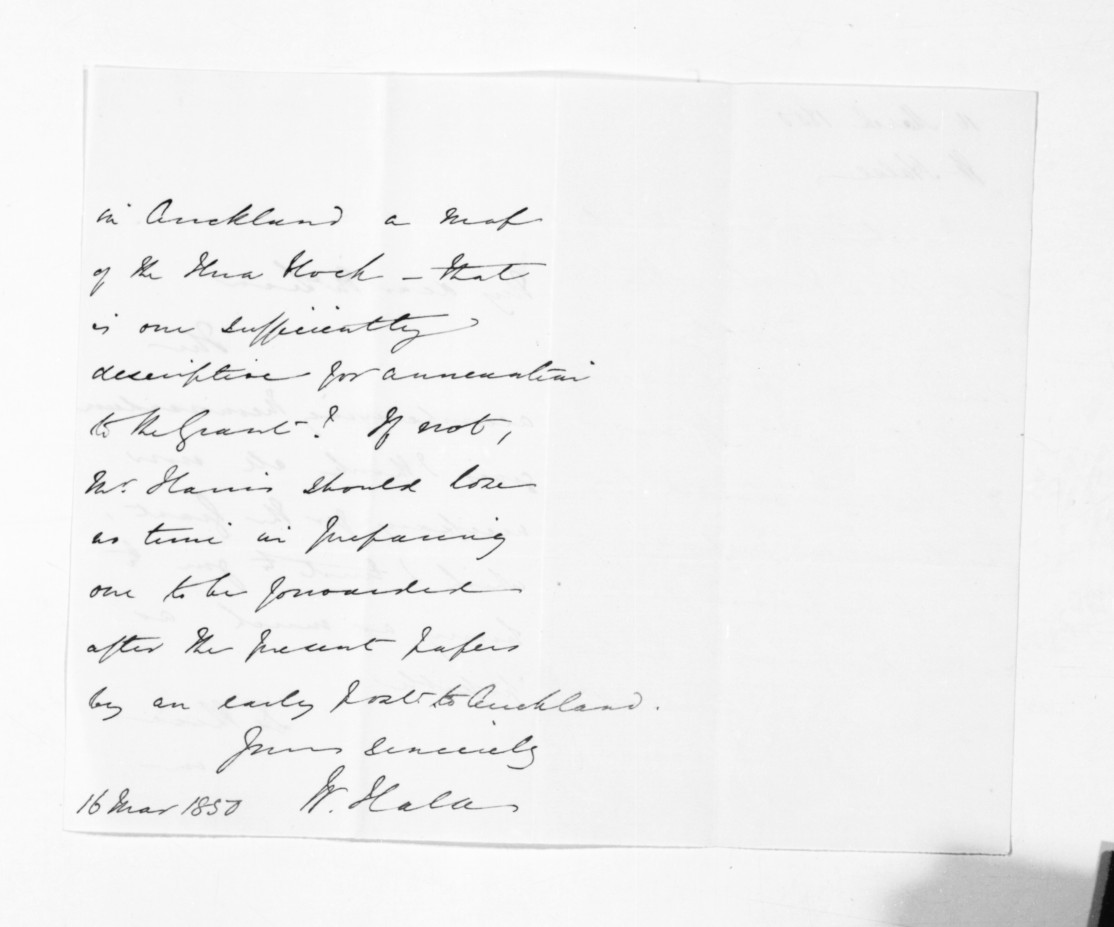 in Auckland a map
of the Hua Block - that
is one sufficiently
descriptive for annexation
to the Grant? If not,
Mr. Harris should lose
no time in preparing
one to be forwarded
after the present papers
by an early post to Auckland.
Yours sincerely
16 Mar 1850 W. Halse